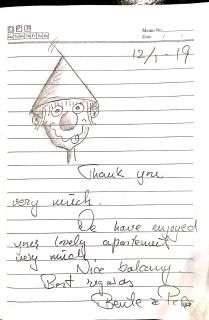 Memo No.
Date / /
12/1-19
Thank you
very much.
We have enjoyed
your lovely apartement
very much.
Nice balcony.
Best regards
Bente &